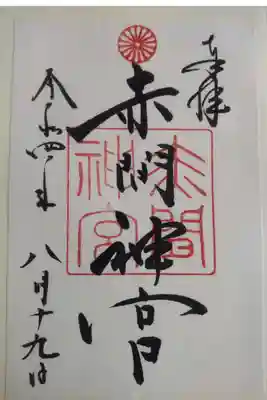 奉拝
赤間神宮
令和四年
八月十九日
赤間
神宮